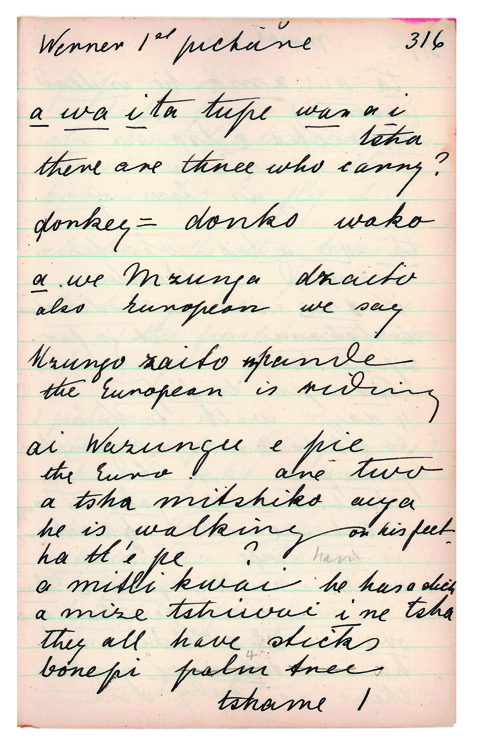 Werner 1st picture 316
a wa ita tupe wan a i
tsha
there are three who carry?
donkey = donko wako
a we Mzunga dzaito
also European we say
Mzungo zaito mpande
the European is riding
ai Wazungu e pie
the Euro. are two
a tsha mitshiko auya
he is walking on his feet
ha tl'e pe ?
a mitli kwai he has a stick
a mize tshiwoi i ne tsha
they all have sticks
bonepi palm trees
tshame 1